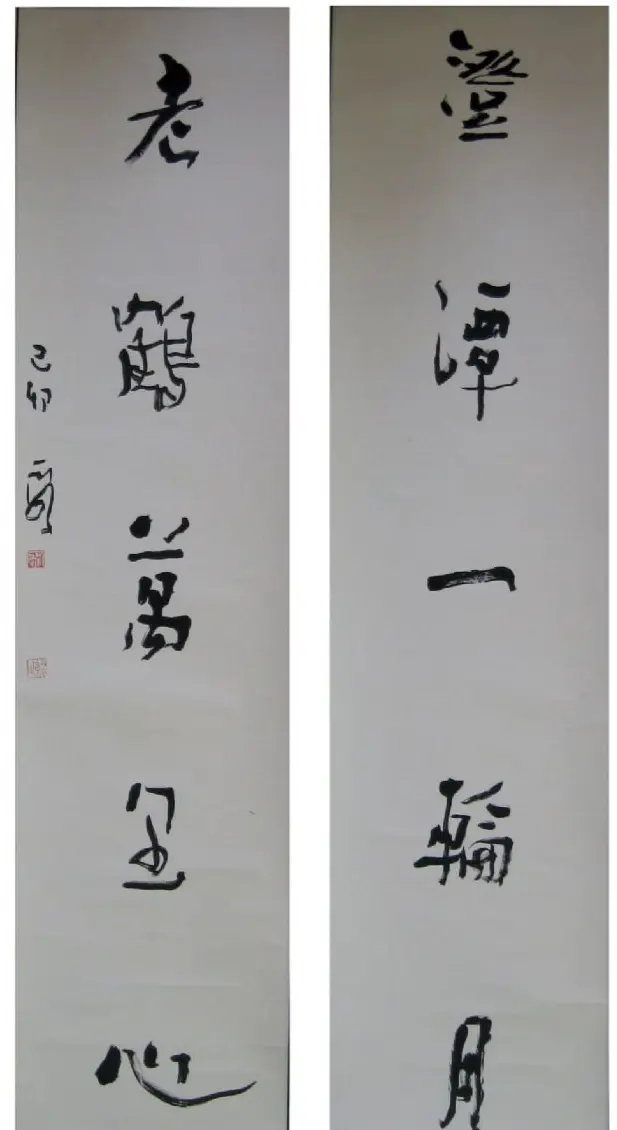 澄潭一輪月
老鶴萬里心
己卯